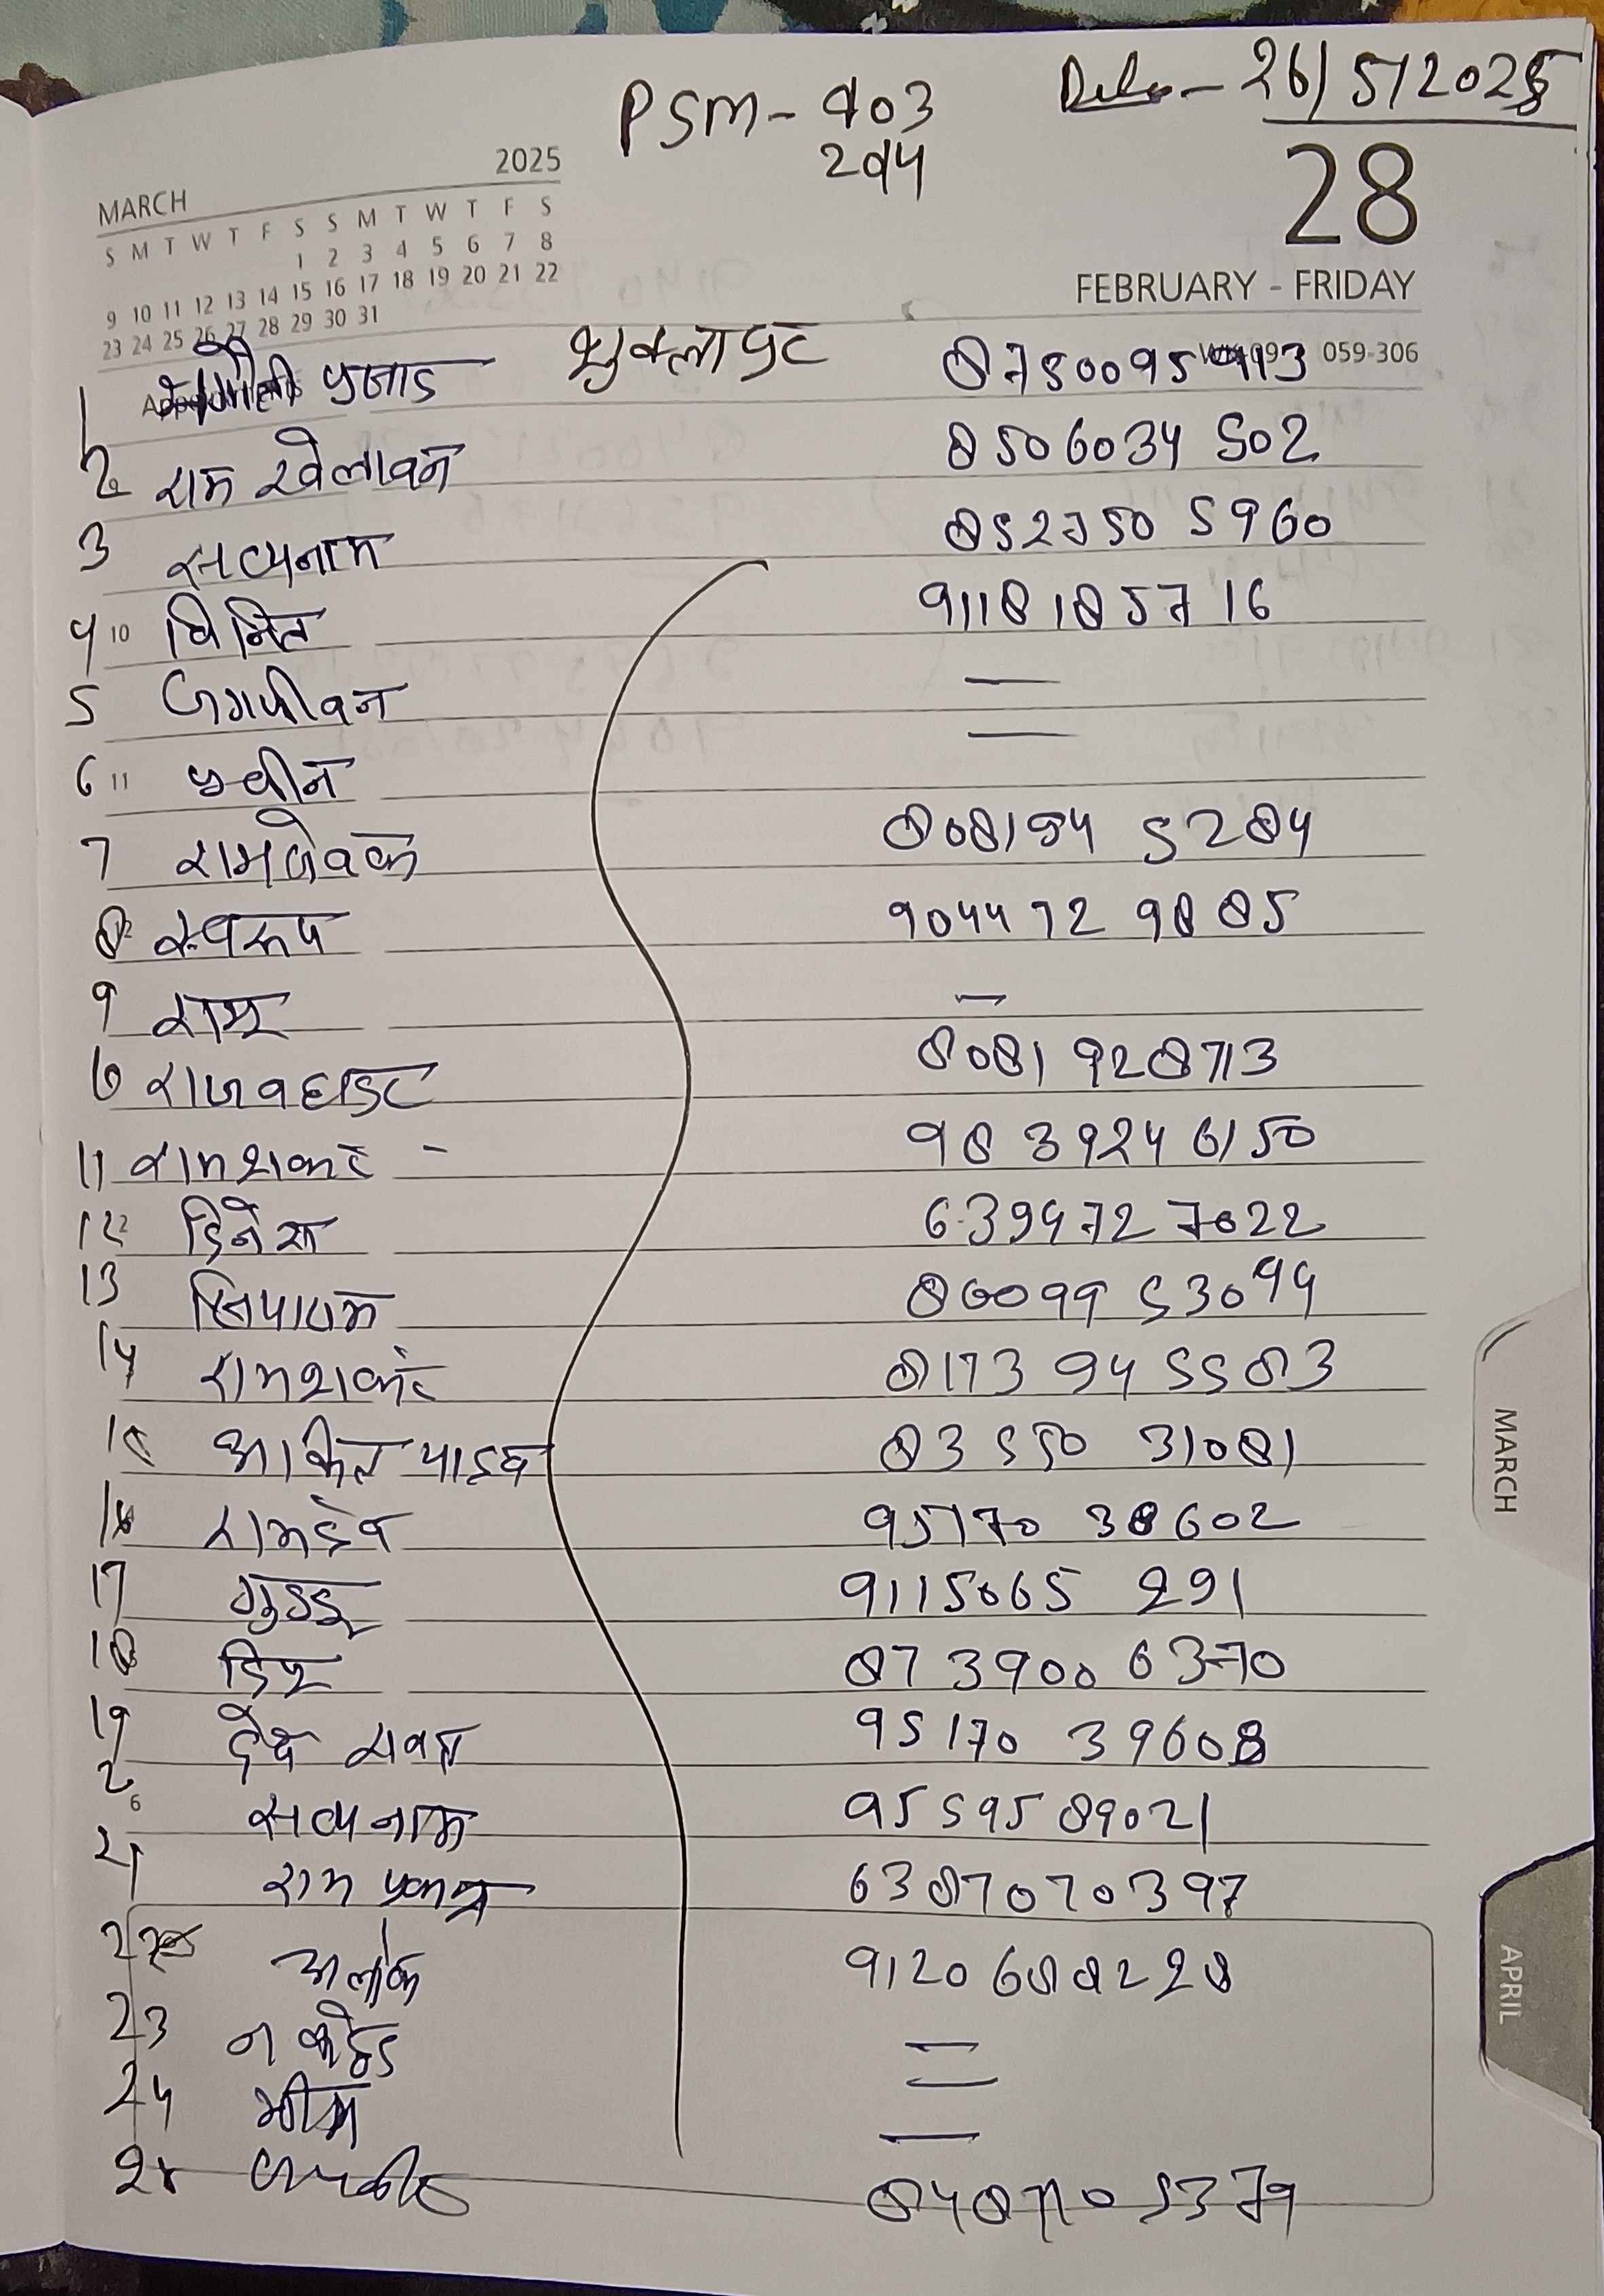 PSM - 903
294
Date - 26/5/2025
2025
MARCH
S M T W T F S S M T W T F S
1 2 3 4 5 6 7 8
9 10 11 12 13 14 15 16 17 18 19 20 21 22
23 24 25 26 27 28 29 30 31
28
FEBRUARY - FRIDAY
059-306
शुक्लापुर
1 प्रजाड 8750095
2 राम खेलावन 8506034502
3 सत्यनाम 8527505960
4 10 विनित 9118185716
5 जगजीवन —
6 11 —
7 रामसेवक 8081945284
8 स्वरूप 9044729885
9 रामू —
10 राजवहाडुर 8081928713
11 रामशंकर - 9839246150
12 दिनेश 6394727022
13 सियाराम 8009953094
14 रामशंकर 8173945583
15 अंकित याडव 8355031081
16 रामदेव 9517038602
17 गुडडू 9115065291
18 8739006370
19 9517039608
2 6 सत्यनाम 9559589021
21 राम 6387070397
22 अलोक 9120688228
23 =
24 भीम —
25
MARCH
APRIL